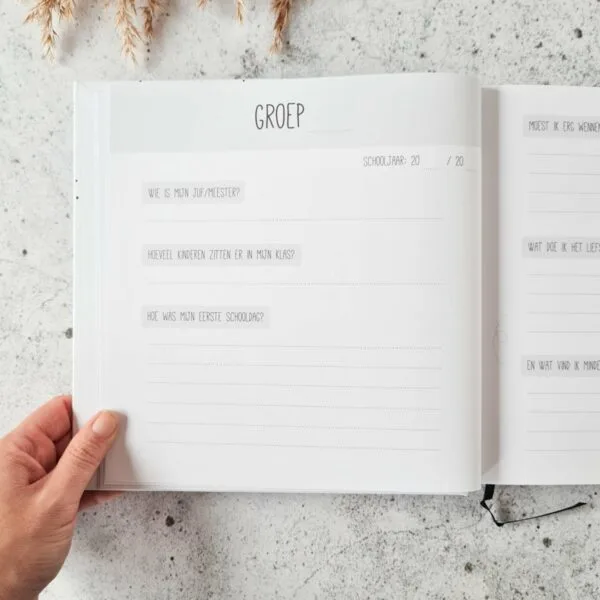 GROEP
SCHOOLJAAR: 20 / 20
WIE IS MIJN JUF/MEESTER?
HOEVEEL KINDEREN ZITTEN ER IN MIJN KLAS?
HOE WAS MIJN EERSTE SCHOOLDAG?
MOEST IK ERG WENNEN
WAT DOE IK HET LIEFS
EN WAT VIND IK MINDE